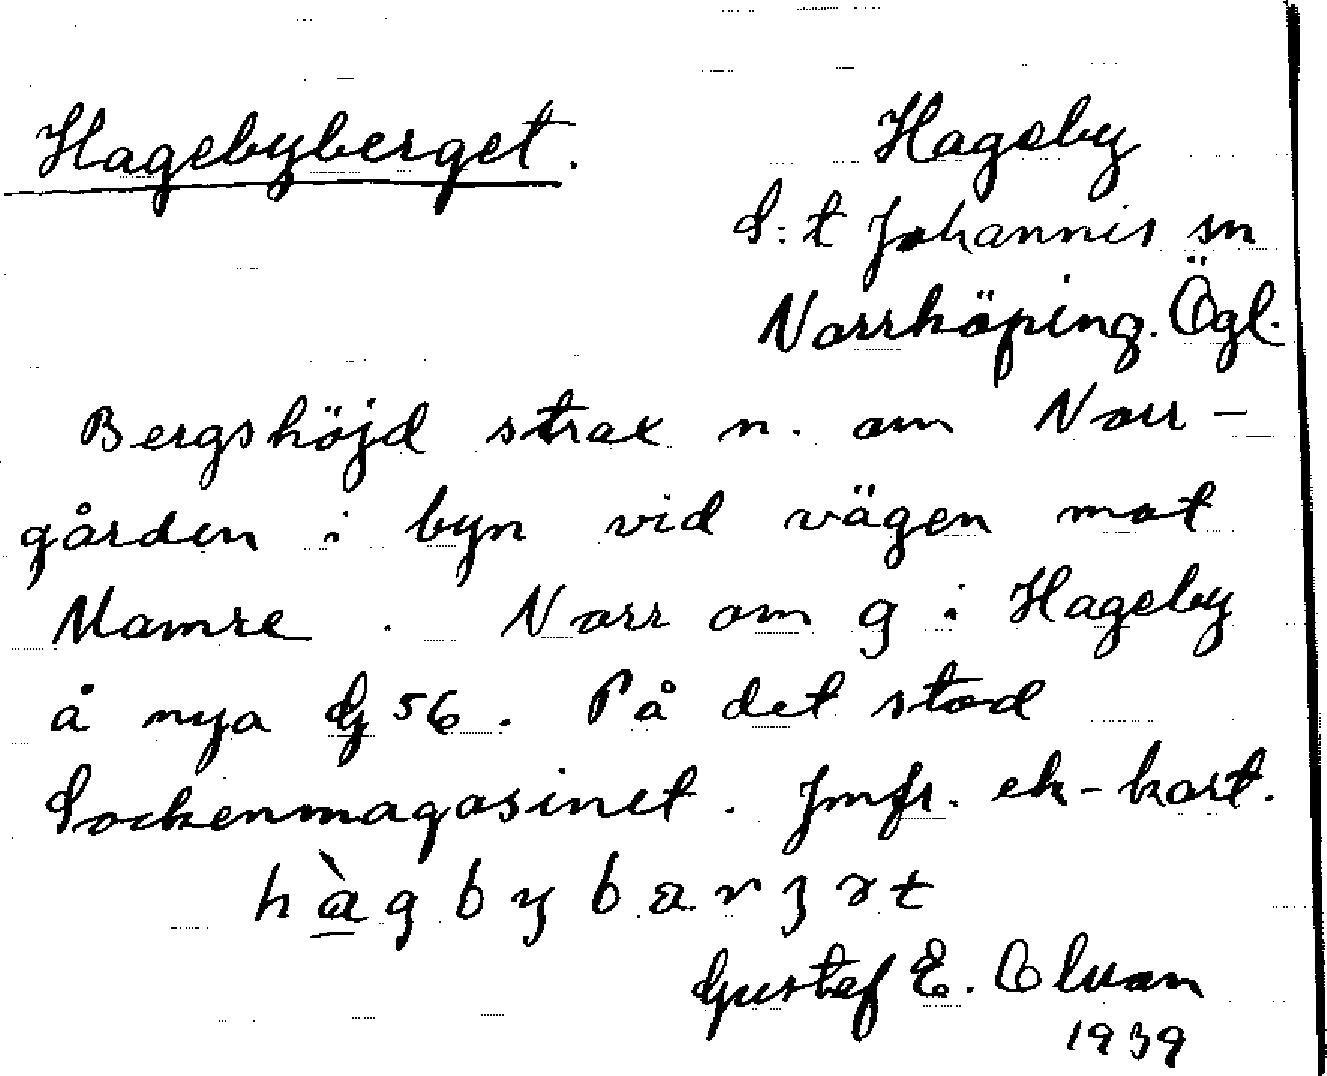 Hagebyberget.
Hageby
S:t Johannis sn
Norrköping. Ögl.
Bergshöjd strax n. om Norr-
gården i byn vid vägen mot
Mamre. Norr om g i Hageby
å nya G 56. På det stod
Sockenmagasinet. Jmfr. ek-kart.
Gustef E.
1939